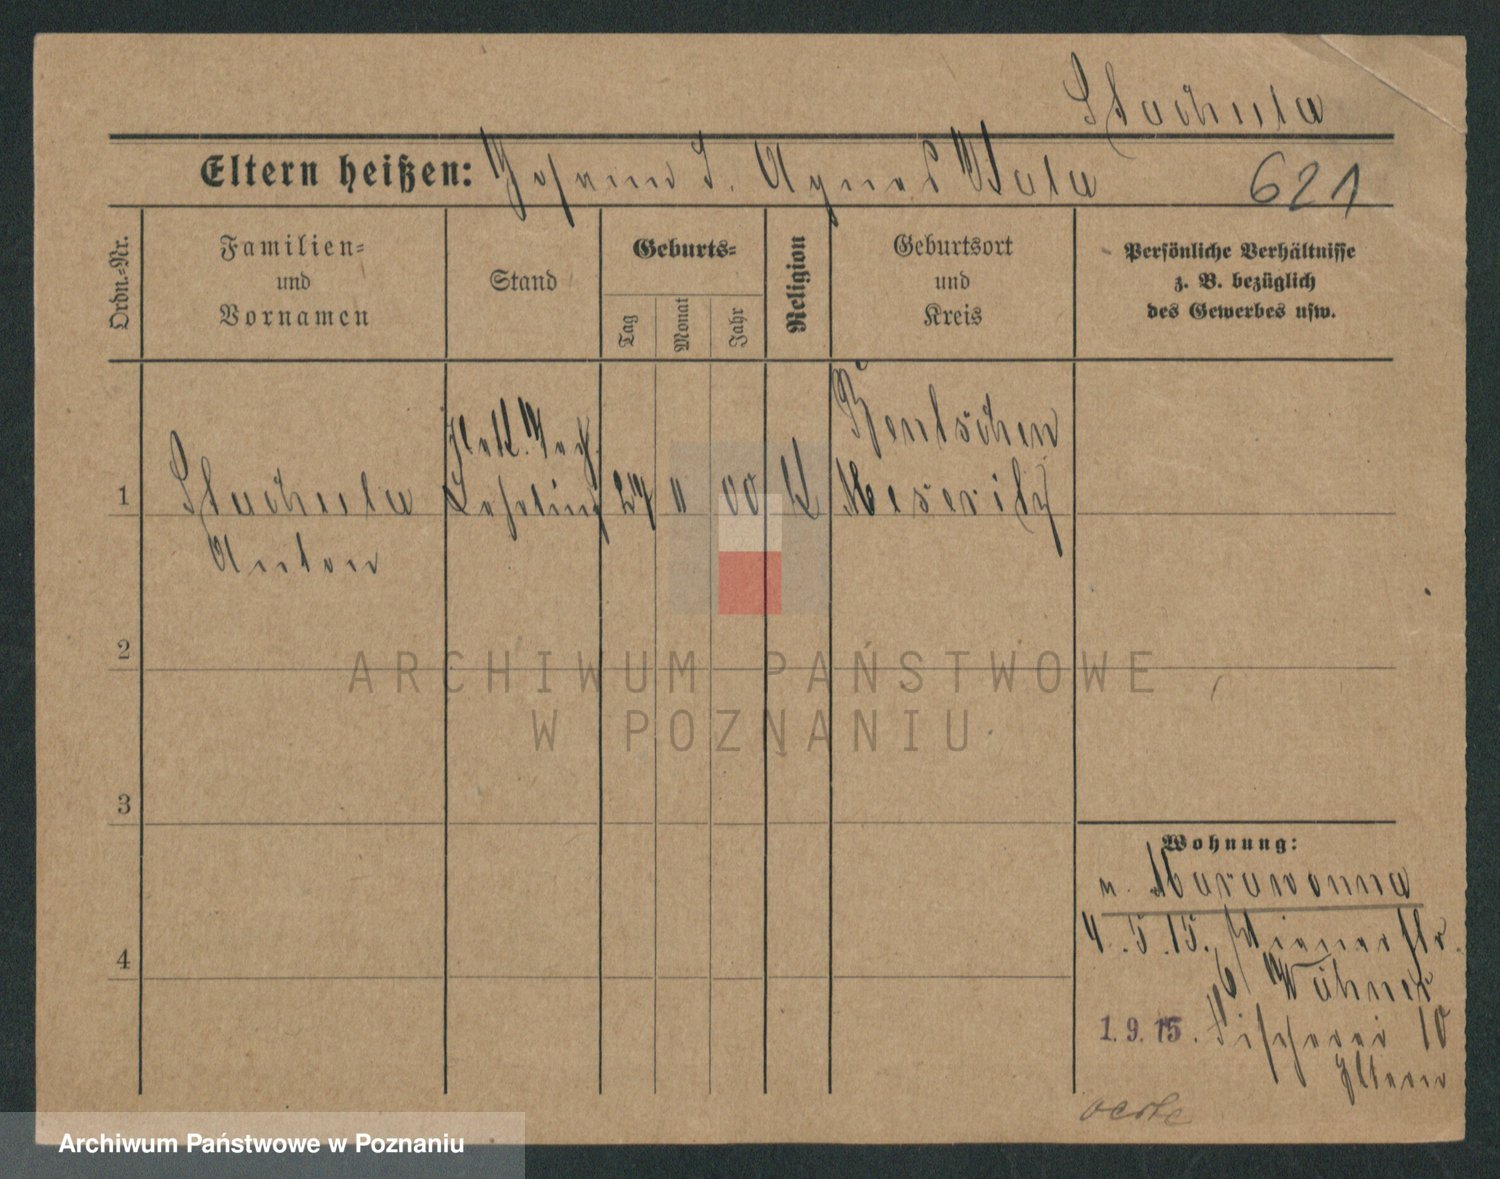 Stachula
Eltern heißen: Johann S. Agnes Wala 621
Ordn.-Nr.
Familien-
und
Vornamen
Stand
Geburts-
Tag
Monat
Jahr
Religion
Geburtsort
und
Kreis
Persönliche Verhältnisse
z. B. bezüglich
des Gewerbes usw.
1
Stachula
Anton
Lehrling
27
11
00
K
Bentschen
Meseritz
2
3
4
Wohnung:
n.
4.5.15. Wienerstr.
6
1.9.15. Fischerei 10
Eltern
ARCHIWUM PAŃSTWOWE
W POZNANIU
Archiwum Państwowe w Poznaniu